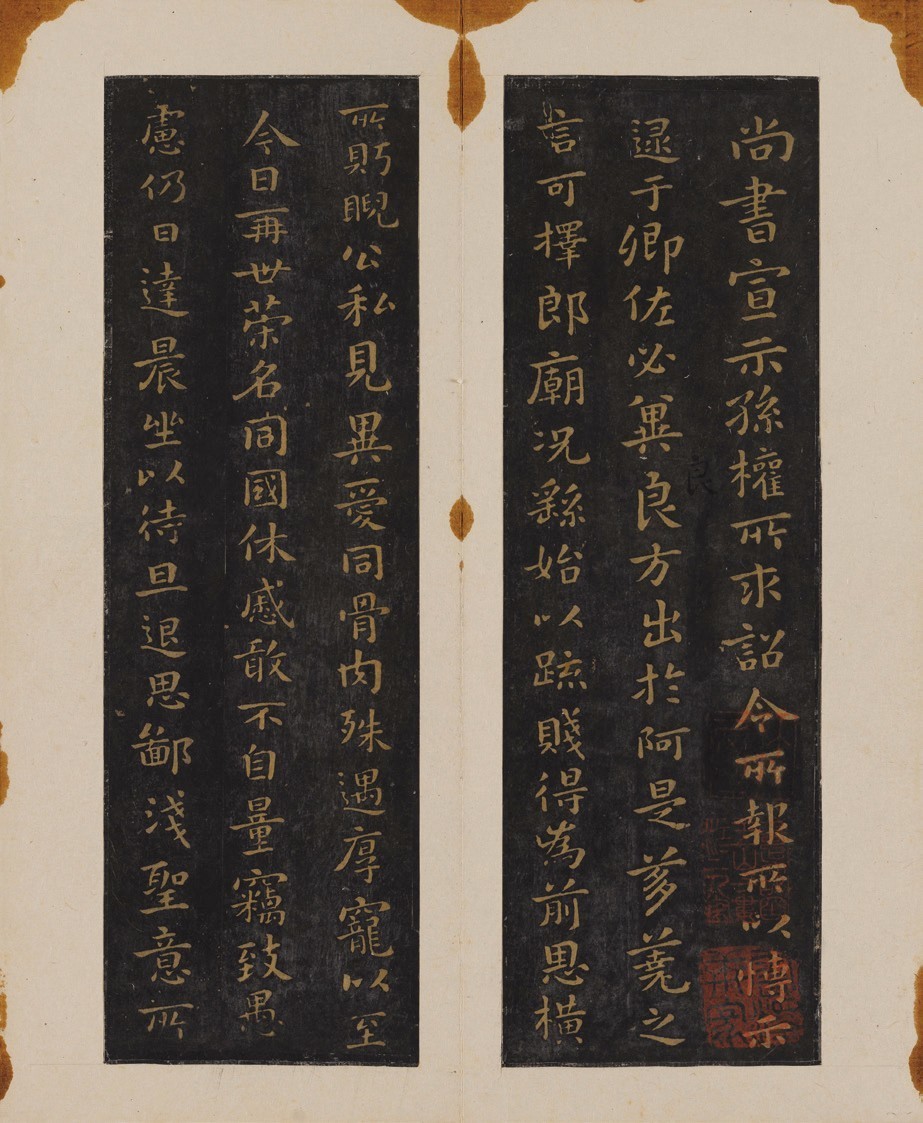 尚書宣示孫權所求詔令所報所以博示
良
逮于卿佐必冀良方出於阿是芻蕘之
言可擇郎廟況繇始以疏賤得為前恩橫
所眄睨公私見異愛同骨肉殊遇厚寵以至
今日再世榮名同國休慼敢不自量竊致愚
慮仍日達晨坐以待旦退思鄙淺聖意所